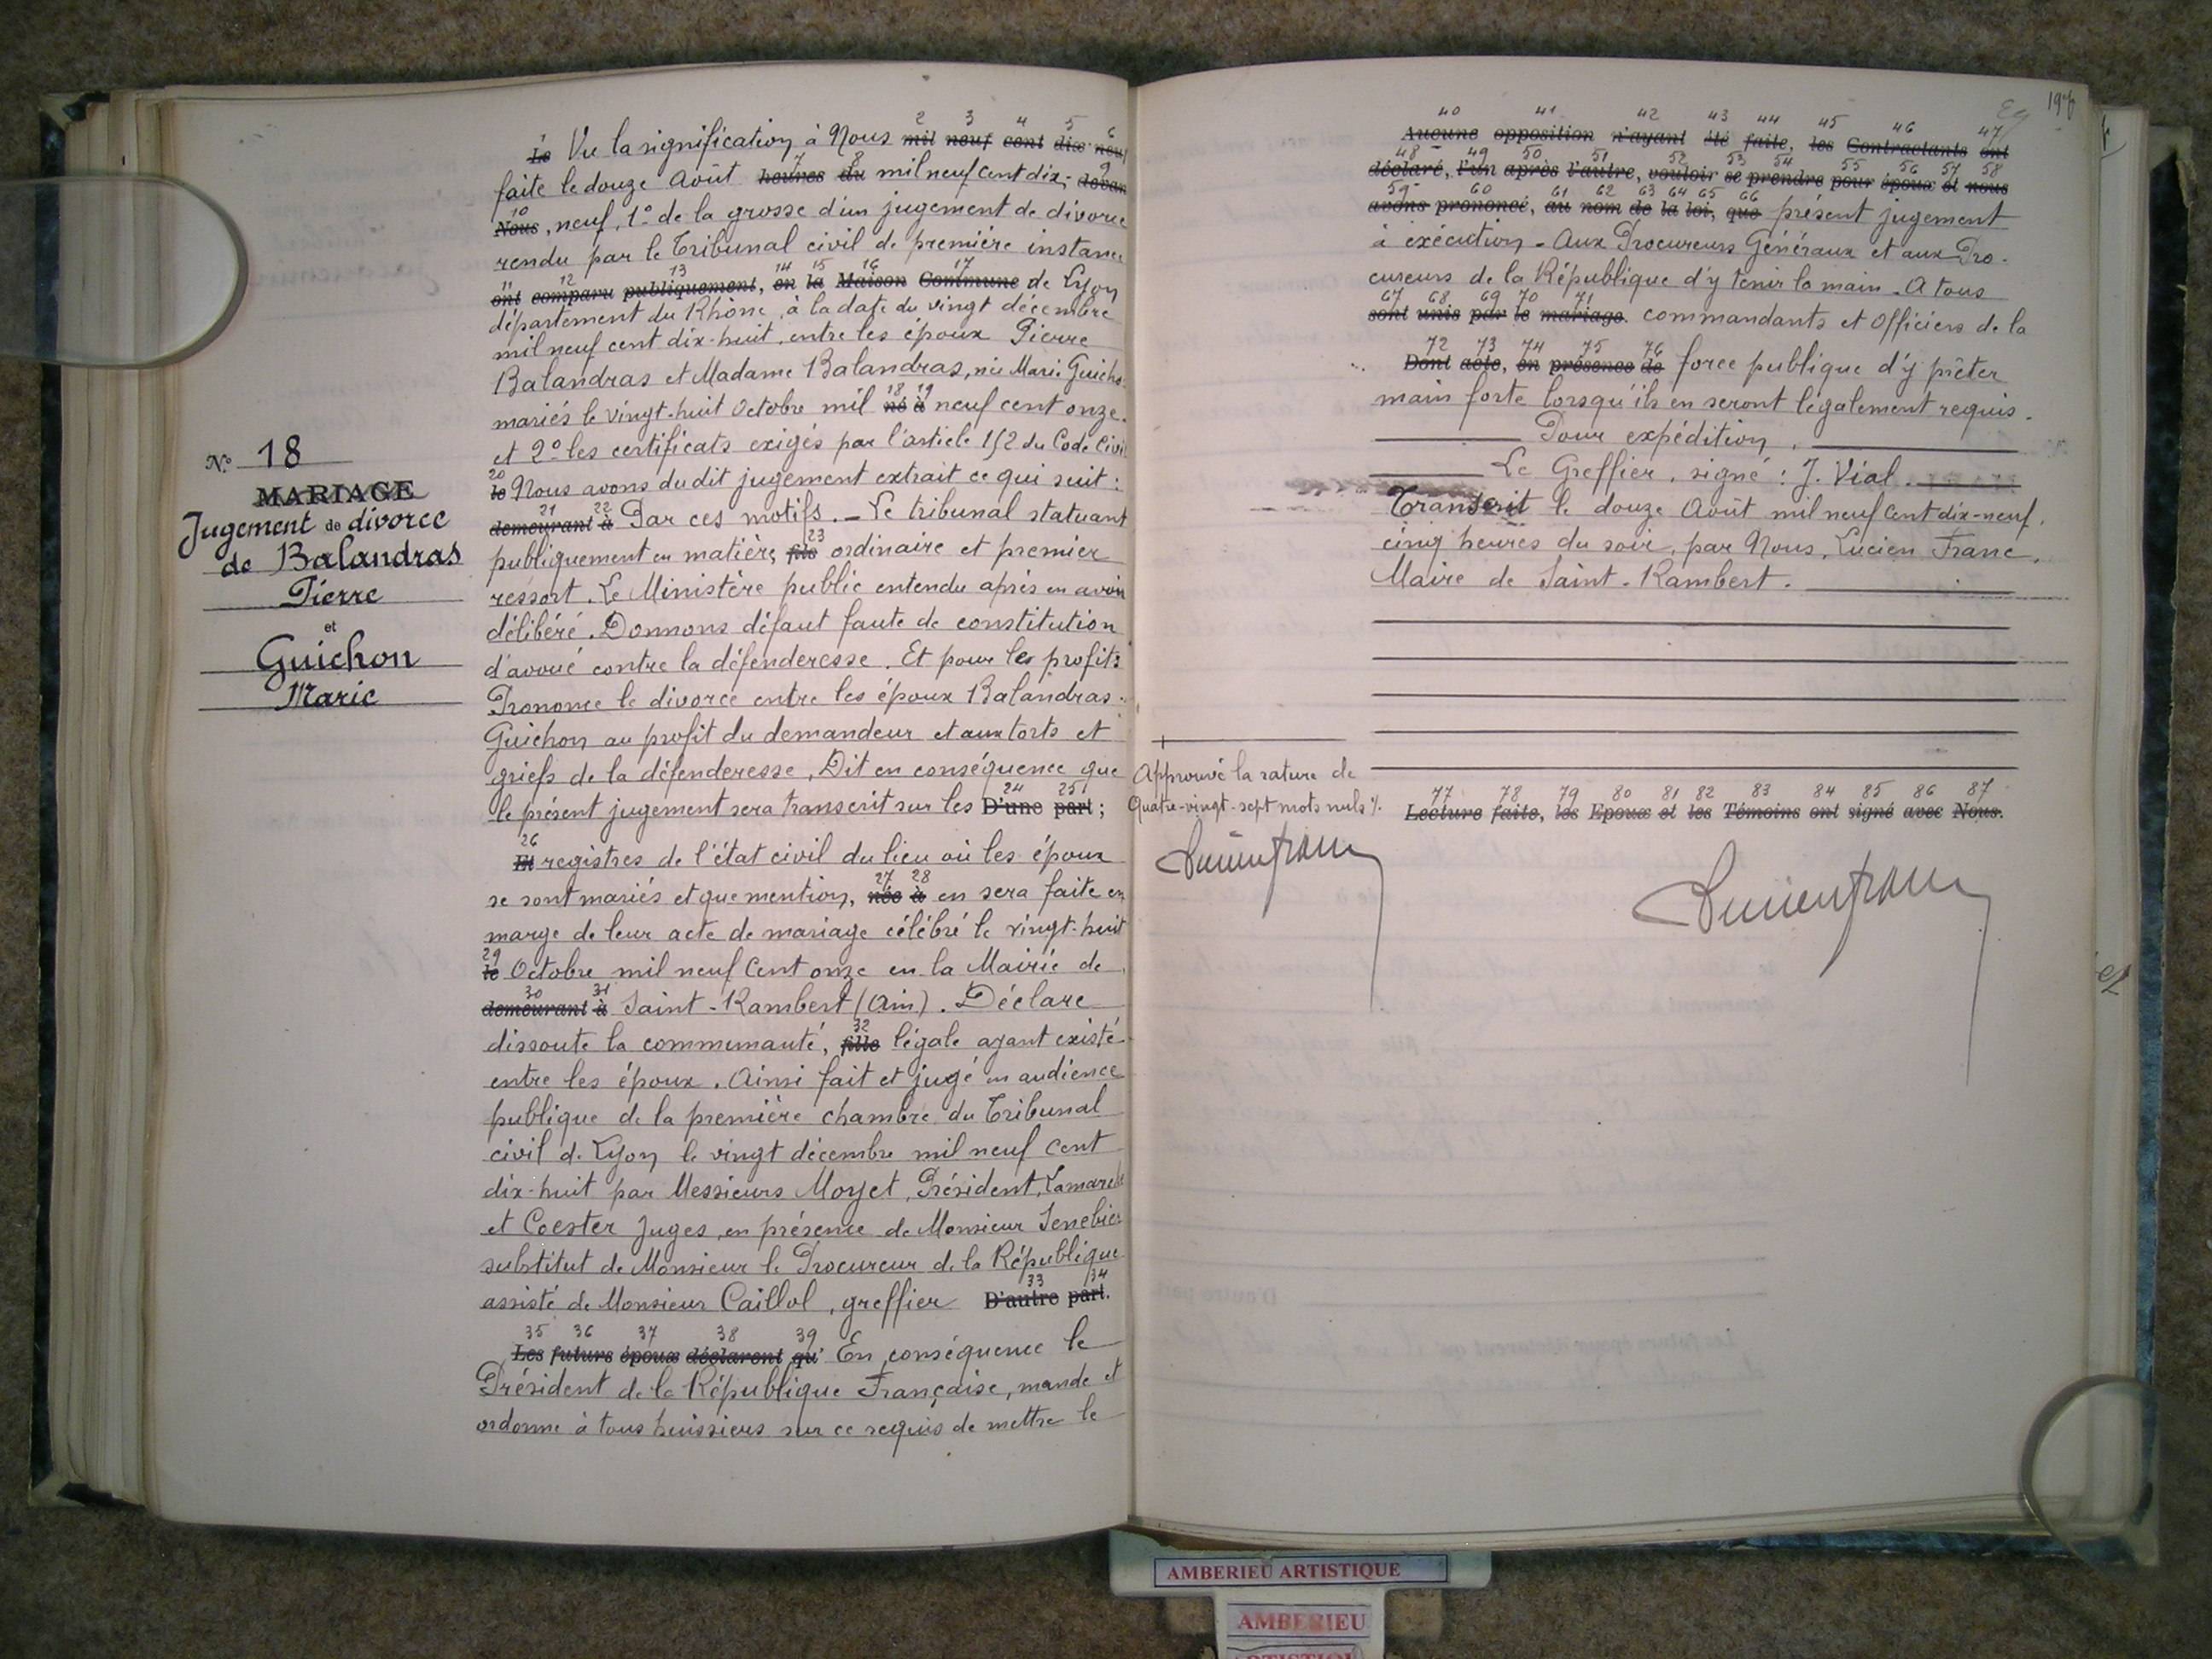 N° 18
MARIAGE
Jugement de divorce
de Balandras
Pierre
et
Guichon
Marie
2 3 4 5 6
Le Vu la signification à Nous mil neuf cent dix-neuf
7 8 9
faite le douze Août heures du mil neuf cent dix- devan
10
Nous, neuf, 1° de la grosse d'un jugement de divorce
rendu par le Tribunal civil de première instance
11 12 13 14 15 16 17
ont comparu publiquement, en la Maison Commune de Lyon
département du Rhône, à la date du vingt décembre
mil neuf cent dix-huit, entre les époux Pierre
Balandras et Madame Balandras, née Marie Guicho
18 19
mariés le vingt-huit Octobre mil né à neuf cent onze.
et 2° les certificats exigés par l'article 152 du Code Civi
20
le Nous avons du dit jugement extrait ce qui suit :
21 22
demeurant à Par ces motifs. - Le tribunal statuant
23
publiquement en matière, fils ordinaire et premier
ressort. Le Ministère public entendu après en avoir
délibéré. Donnons défaut faute de constitution
d'avoué contre la défenderesse. Et pour les profits
Prononce le divorce entre les époux Balandras-
Guichon au profit du demandeur et aux torts et
griefs de la défenderesse, Dit en conséquence que
24 25
le présent jugement sera transcrit sur les D'une part ;
26
Et registres de l'état civil du lieu où les époux
27 28
se sont mariés et que mention, née à en sera faite en
marge de leur acte de mariage célébré le vingt-huit
29
le Octobre mil neuf cent onze en la Mairie de
30 31
demeurant à Saint-Rambert (Ain). Déclare
32
dissoute la communauté, fille légale ayant existé
entre les époux. Ainsi fait et jugé en audience
publique de la première chambre du Tribunal
civil de Lyon le vingt décembre mil neuf cent
dix-huit par Messieurs Moyet, Président,
et Coester Juges, en présence de Monsieur Senebier
substitut de Monsieur le Procureur de la République
33 34
assisté de Monsieur Caillol, greffier D'autre part.
35 36 37 38 39
Les futurs époux déclarent qu' En conséquence le
Président de la République Française, mande et
ordonne à tous huissiers sur ce requis de mettre le
197
40 41 42 43 44 45 46 47
Aucune opposition n'ayant été faite, les Contractants ont
48 49 50 51 52 53 54 55 56 57 58
déclaré, l'un après l'autre, vouloir se prendre pour époux et nous
59 60 61 62 63 64 65 66
avons prononcé, au nom de la loi, que présent jugement
à exécution - Aux Procureurs Généraux et aux Pro-
cureurs de la République d'y tenir la main. A tous
67 68 69 70 71
sont unis par le mariage. commandants et Officiers de la
72 73 74 75 76
Dont acte, en présence de force publique d'y prêter
main forte lorsqu'ils en seront légalement requis.
Pour expédition,
Le Greffier, signé : J. Vial.
Transcrit le douze Août mil neuf cent dix-neuf,
cinq heures du soir, par Nous, Lucien Franc,
Maire de Saint-Rambert.
Approuvé la rature de
Quatre-vingt-sept mots nuls
77 78 79 80 81 82 83 84 85 86 87
Lecture faite, les Epoux et les Témoins ont signé avec Nous.
Lucien Franc
Lucien Franc
AMBERIEU ARTISTIQUE
AMBERIEU
ARTISTIQU